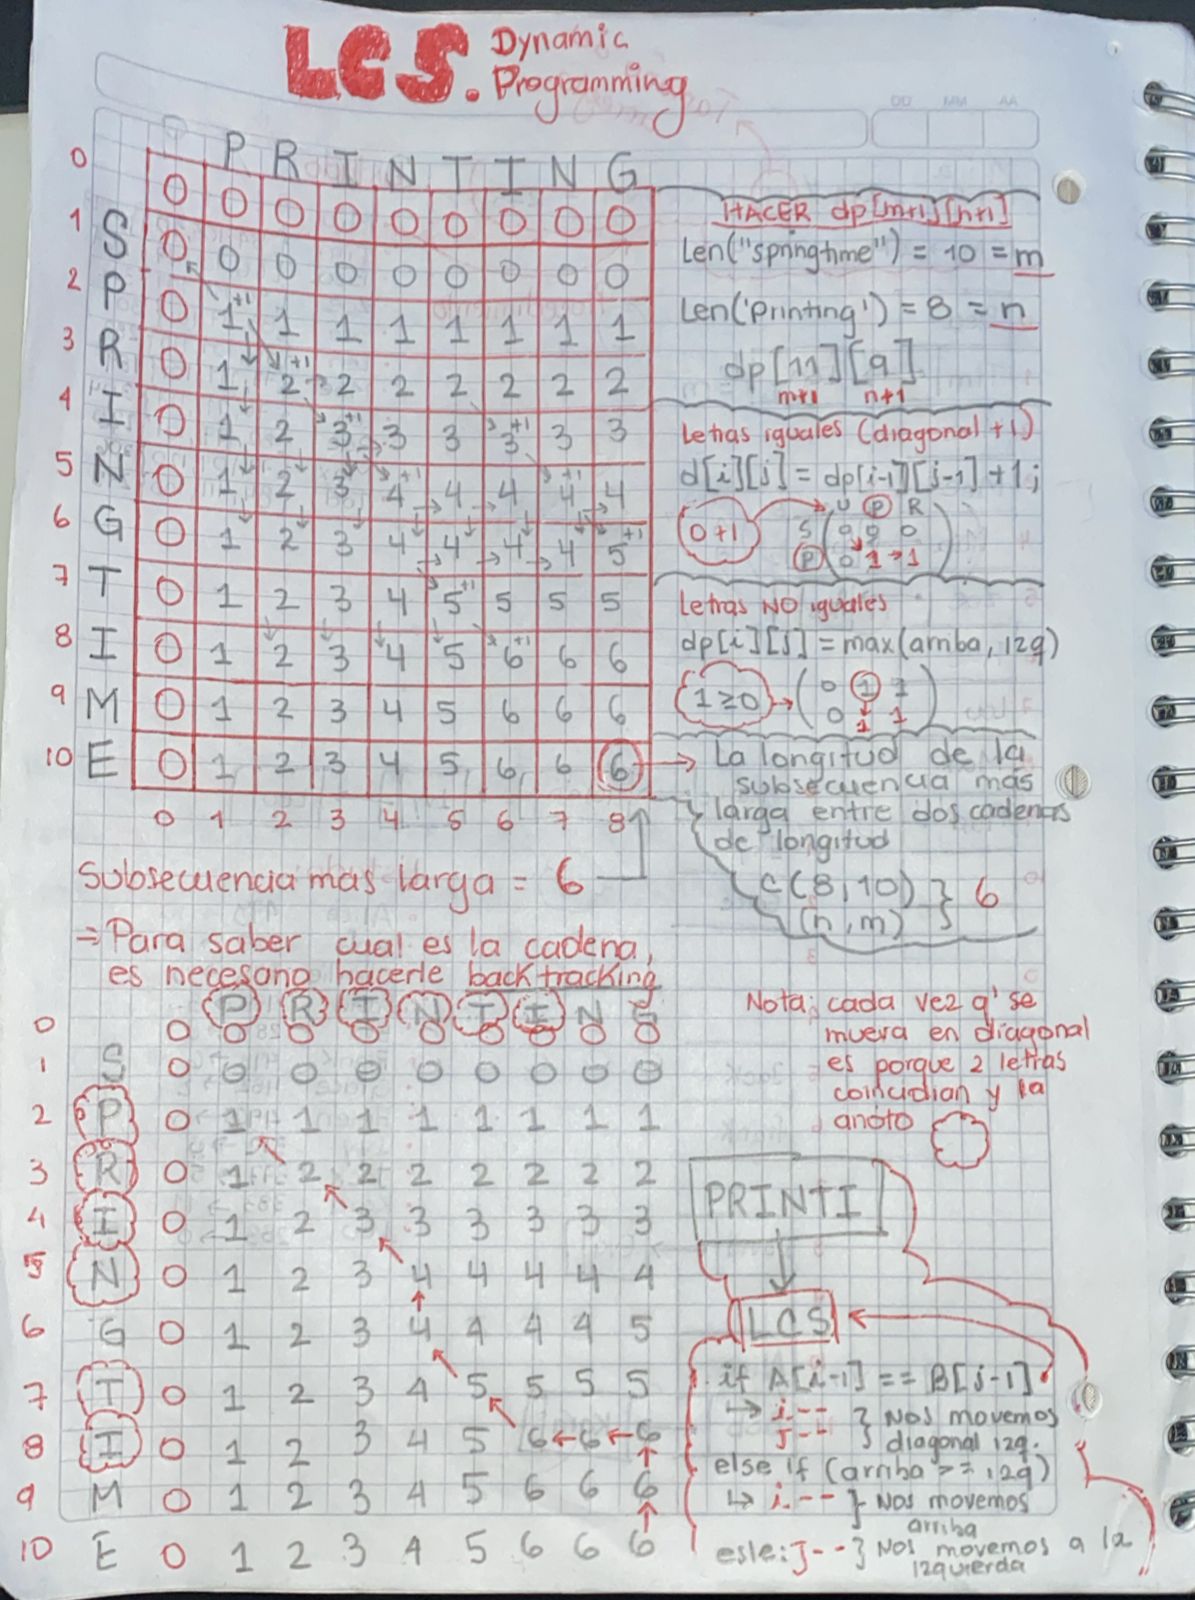 LCS. Dynamic
Programming
DD MM AA
P R I N T I N G
0 0 0 0 0 0 0 0 0 0
1 S 0 0 0 0 0 0 0 0 0
2 P 0 1+1 1 1 1 1 1 1 1
3 R 0 1 2+1 2 2 2 2 2 2
4 I 0 1 2 3+1 3 3 3+1 3 3
5 N 0 1 2 3 4+1 4 4 4+1 4
6 G 0 1 2 3 4 4 4 4 5+1
7 T 0 1 2 3 4 5+1 5 5 5
8 I 0 1 2 3 4 5 6+1 6 6
9 M 0 1 2 3 4 5 6 6 6
10 E 0 1 2 3 4 5 6 6 6
0 1 2 3 4 5 6 7 8
HACER dp[m+1][n+1]
Len("springtime") = 10 = m
Len('Printing') = 8 = n
dp[11][9]
m+1 n+1
Letras iguales (diagonal +1)
d[i][j] = dp[i-1][j-1] +1;
0+1
U P R
S 0 0 0
P 0 1 → 1
Letras NO iguales
dp[i][j] = max(arriba, izq)
1≥0 → 0 1 1
0 1 1
→ La longitud de la
subsecuencia más
larga entre dos cadenas
de longitud
C(8,10) } 6
(n,m)
Subsecuencia mas larga = 6
⇒ Para saber cual es la cadena,
es necesario hacerle backtracking
P R I N T I N G
0 0 0 0 0 0 0 0 0 0
1 S 0 0 0 0 0 0 0 0 0
2 P 0 1 1 1 1 1 1 1 1
3 R 0 1 2 2 2 2 2 2 2
4 I 0 1 2 3 3 3 3 3 3
5 N 0 1 2 3 4 4 4 4 4
6 G 0 1 2 3 4 4 4 4 5
7 T 0 1 2 3 4 5 5 5 5
8 I 0 1 2 3 4 5 6 ← 6 ← 6
9 M 0 1 2 3 4 5 6 6 6
10 E 0 1 2 3 4 5 6 6 6
Nota: cada vez q' se
mueva en diagonal
es porque 2 letras
coincidian y la
anoto
PRINTI
LCS
if A[i-1] == B[j-1]
↳ i-- } Nos movemos
J-- } diagonal izq.
else if (arriba >= izq)
↳ i-- } Nos movemos
arriba
esle: J-- } Nos movemos a la
izquierda